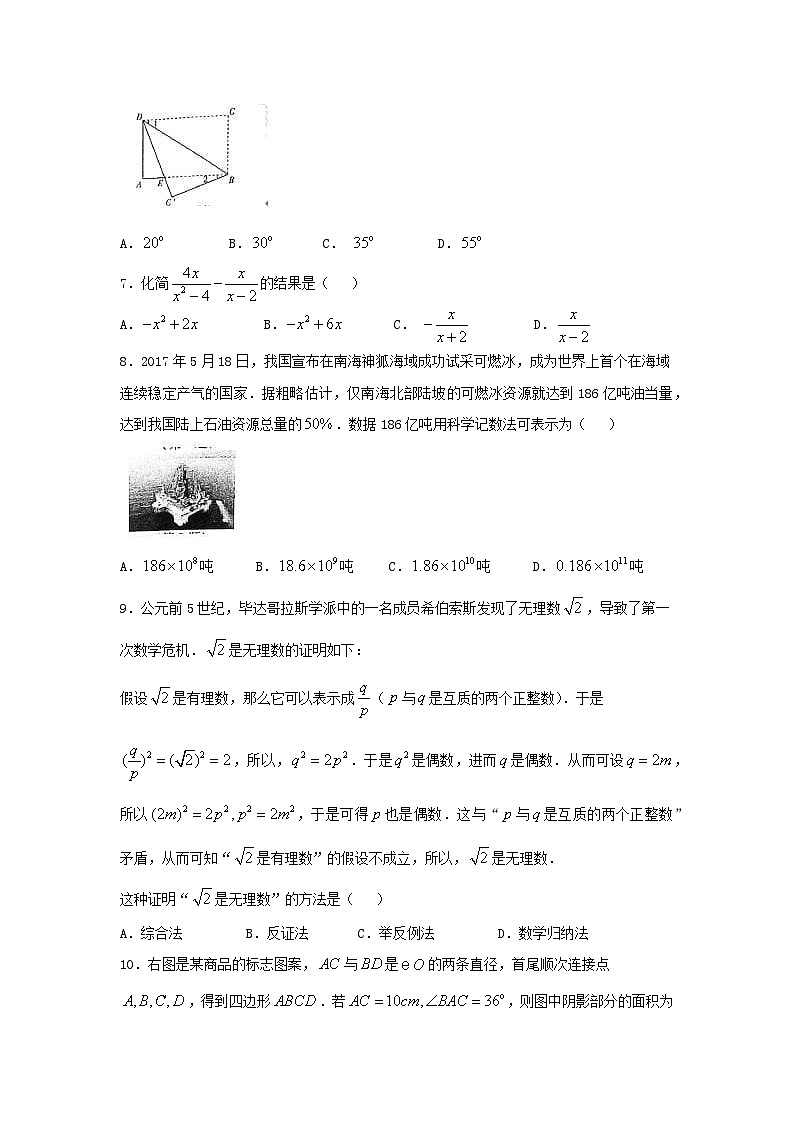 D
C
1
A
E
2
B
C'
A.20° B.30° C. 35° D.55°
7.化简 4x/(x²−4) − x/(x−2) 的结果是( )
A.−x²+2x B.−x²+6x C. −x/(x+2) D. x/(x−2)
8.2017年5月18日,我国宣布在南海神狐海域成功试采可燃冰,成为世界上首个在海域
连续稳定产气的国家.据粗略估计,仅南海北部陆坡的可燃冰资源就达到186亿吨油当量,
达到我国陆上石油资源总量的50%.数据186亿吨用科学记数法可表示为( )
A.186×10⁸吨 B.18.6×10⁹吨 C.1.86×10¹⁰吨 D.0.186×10¹¹吨
9.公元前5世纪,毕达哥拉斯学派中的一名成员希伯索斯发现了无理数√2,导致了第一
次数学危机.√2是无理数的证明如下:
假设√2是有理数,那么它可以表示成q/p(p与q是互质的两个正整数).于是
(q/p)²=(√2)²=2,所以,q²=2p².于是q²是偶数,进而q是偶数.从而可设q=2m,
所以(2m)²=2p²,p²=2m²,于是可得p也是偶数.这与“p与q是互质的两个正整数”
矛盾,从而可知“√2是有理数”的假设不成立,所以,√2是无理数.
这种证明“√2是无理数”的方法是( )
A.综合法 B.反证法 C.举反例法 D.数学归纳法
10.右图是某商品的标志图案,AC与BD是eO的两条直径,首尾顺次连接点
A,B,C,D,得到四边形ABCD.若AC=10cm,∠BAC=36°,则图中阴影部分的面积为